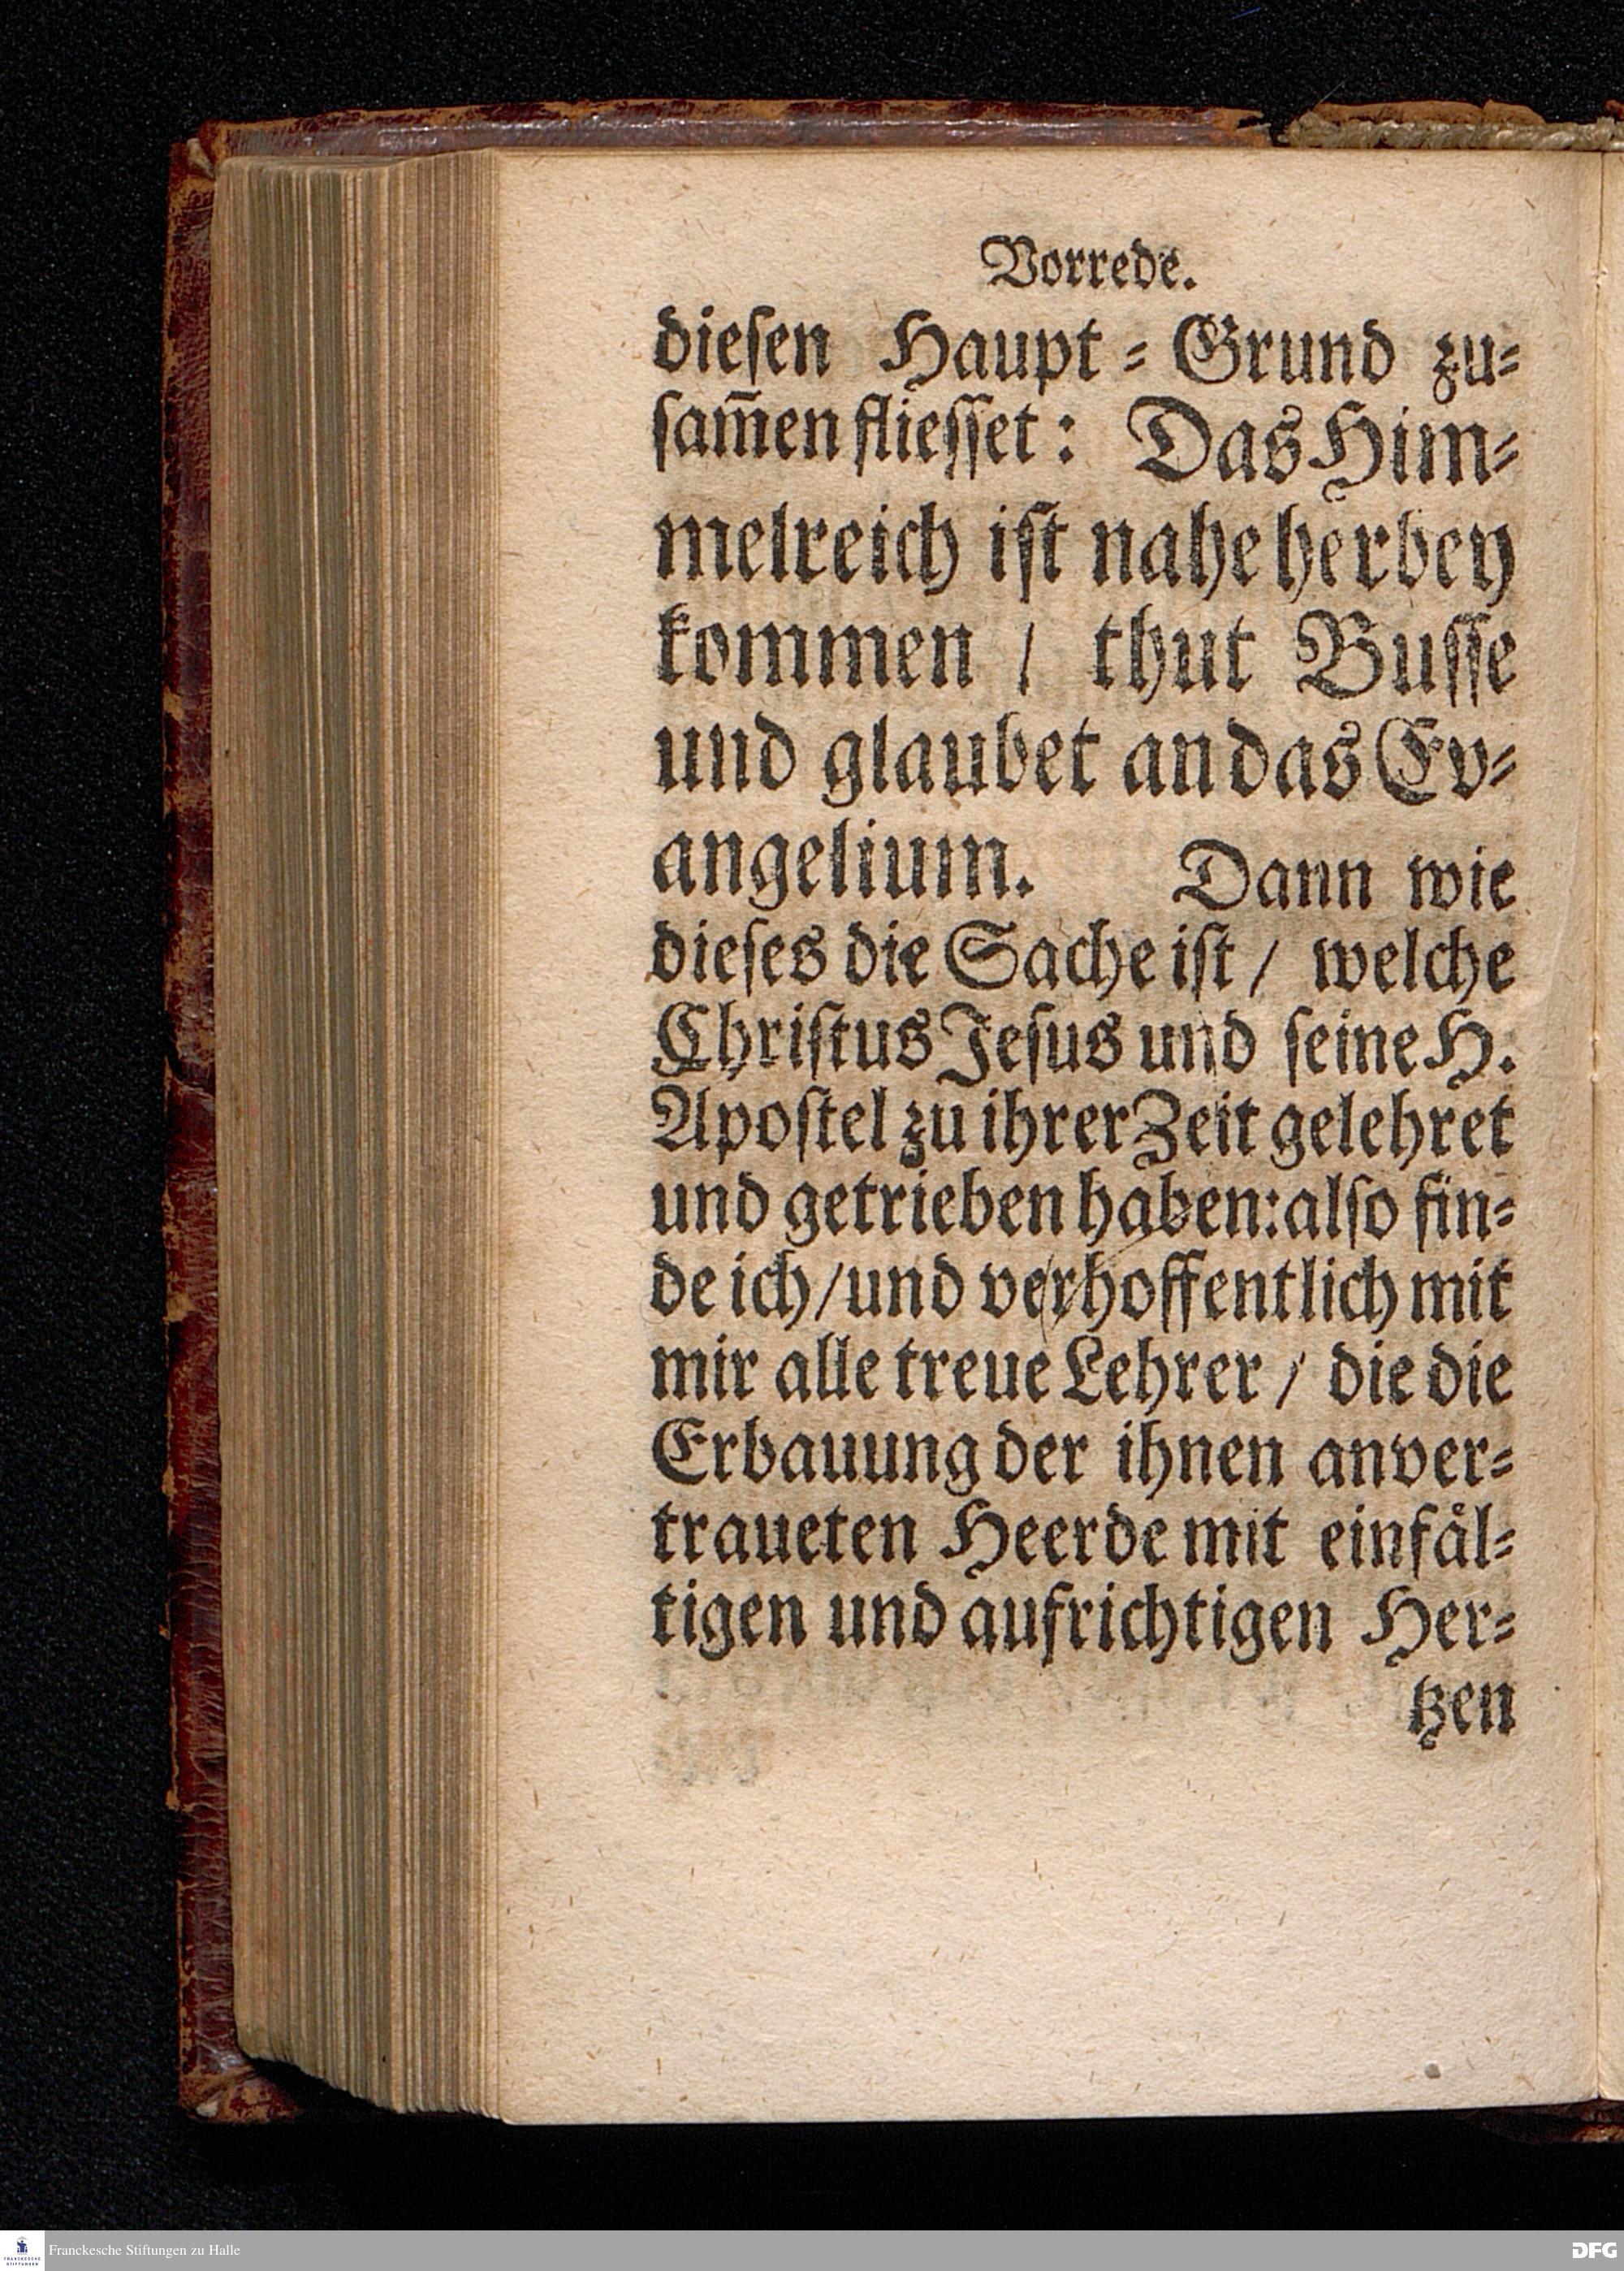 Vorrede.
dieſen Haupt⸗Grund zu⸗
ſam̃en flieſſet: Das Him⸗
melreich iſt nahe herbey
kommen / thut Buſſe
und glaubet an das Ev⸗
angelium. Dann wie
dieſes die Sache iſt / welche
Chriſtus Jeſus und ſeine H.
Apoſtel zu ihrer Zeit gelehret
und getrieben haben: alſo fin⸗
de ich / und verhoffentlich mit
mir alle treue Lehrer / die die
Erbauung der ihnen anver⸗
traueten Heerde mit einfaͤl⸗
tigen und aufrichtigen Her⸗
tzen
FRANCKESCHE
STIFTUNGEN
Franckesche Stiftungen zu Halle
DFG